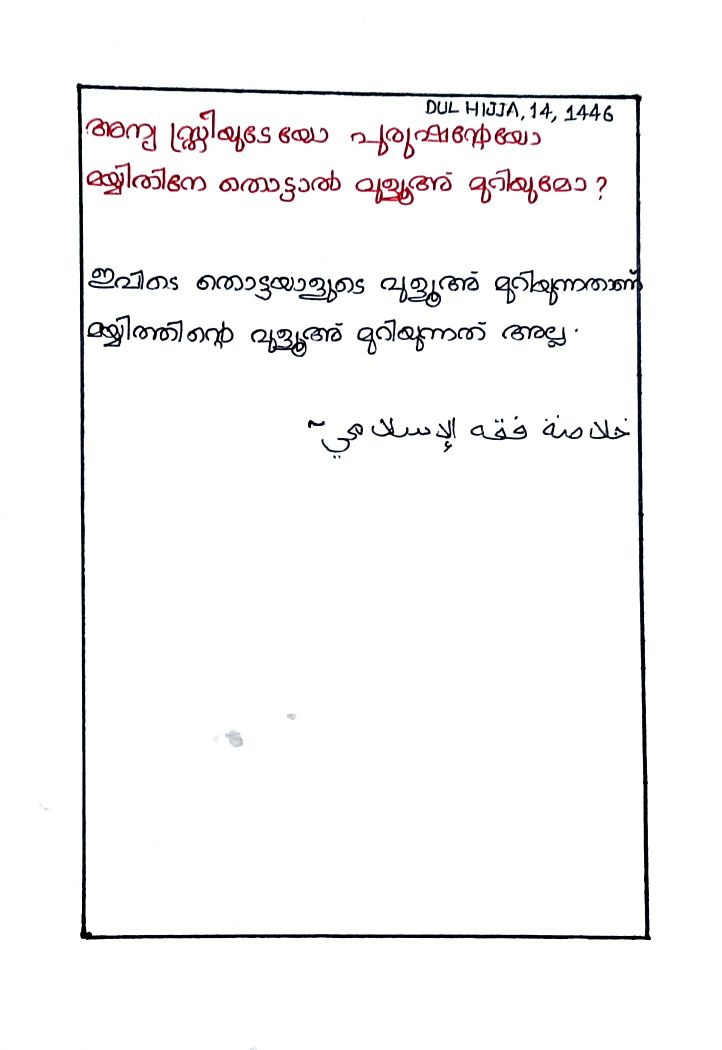 DUL HIJJA, 14, 1446
അന്യ സ്ത്രീയുടേയോ പുരുഷൻ്റേയോ
മയ്യിതിനേ തൊട്ടാൽ വുളൂഅ് മുറിയുമോ?
ഇവിടെ തൊട്ടയാളുടെ വുളൂഅ് മുറിയുന്നതാണ്
മയ്യിത്തിൻ്റെ വുളൂഅ് മുറിയുന്നത് അല്ല.
خلاصة فقه الإسلامي~